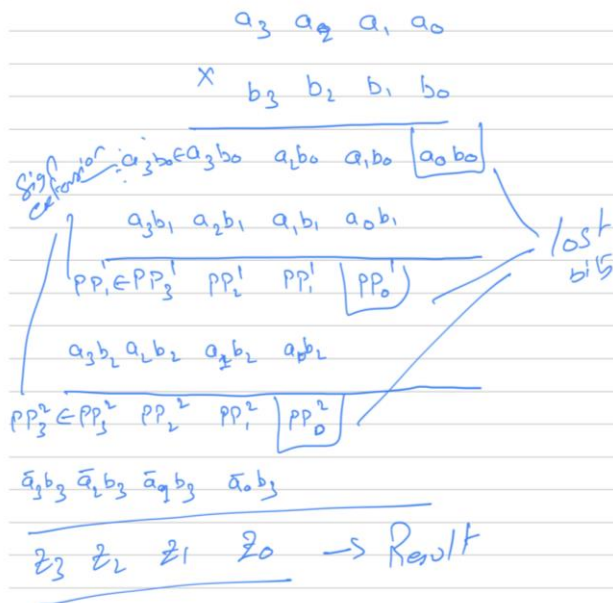 a₃ a₂ a₁ a₀
× b₃ b₂ b₁ b₀
sign extension a₃b₀ ← a₃b₀ a₂b₀ a₁b₀ a₀b₀
a₃b₁ a₂b₁ a₁b₁ a₀b₁
lost bits
PP₁¹ ← PP₃¹ PP₂¹ PP₁¹ PP₀¹
a₃b₂ a₂b₂ a₁b₂ a₀b₂
PP₃² ← PP₃² PP₂² PP₁² PP₀²
ā₃b₃ ā₂b₃ ā₁b₃ ā₀b₃
Z₃ Z₂ Z₁ Z₀ → Result